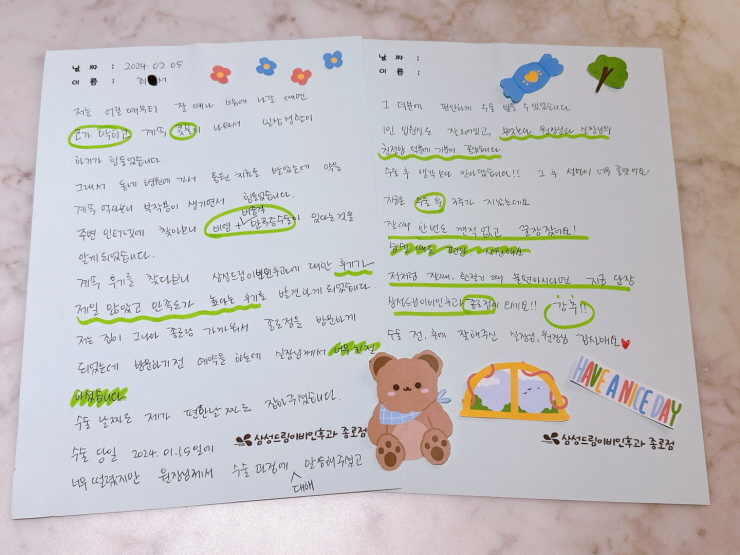 날 짜 : 2024.02.05
이 름 : 최 서
저는 어릴 때부터 잘 때나 밖에 나갈 때면
코가 막히고 계속 콧물이 나와서 일상생활이
하기가 힘들었습니다.
그래서 동네 병원에 가서 통원 치료를 받았는데 약을
계속 먹다보니 부작용이 생기면서 힘들었습니다.
주변 인터넷에 찾아보니 비염 + 비중격 만곡증수술이 있다는것을
알게 되었습니다.
계속 후기를 찾다보니 삼성드림이비인후과에 대한 후기가
제일 많았고 만족도가 높다는 후기를 발견하게 되었습니다.
저는 집이 그나마 종로랑 가까워서 종로점을 방문하게
되었는데 방문하기전 예약을 하는데 실장님께서 너무 친절
하셨습니다
수술 날짜도 제가 편한날 짜로 잡아주셨습니다.
수술 당일 2024.01.15일에
너무 떨렸지만 원장님께서 수술 과정에 대해 말씀해주셨고
삼성드림이비인후과 종로점
날 짜 :
이 름 :
그 덕분에 편안하게 수술 받을 수 있었습니다
1인 입원실도 잘 되어있고, 원장님의
친절함 덕분에 기분이 좋았습니다
수술 후 생각보다 안아팠습니다!!
지금은 수술 후 3주가 지났는데요
잘때 한번도 깬적 없고 꿀잠 잤어요!
저처럼 잘때, 환절기 때 불편하시다면 지금 당장
삼성드림이비인후과 종로점이 되세요!! 강추!!
수술 전, 후에 잘해주신 실장님, 원장님 감사해요
HAVE A NICE DAY
삼성드림이비인후과 종로점